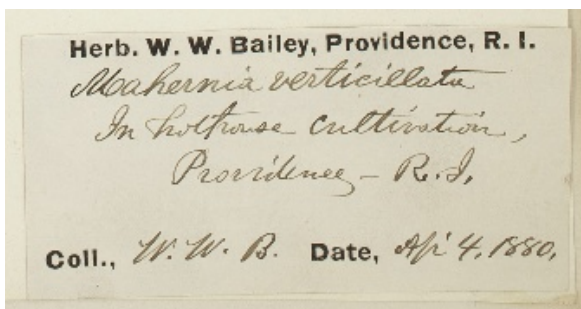 Herb. W. W. Bailey, Providence, R. I.
Mahernia verticillata
In hothouse cultivation,
Providence – R. I.
Coll., W. W. B. Date, Apr 4, 1880.